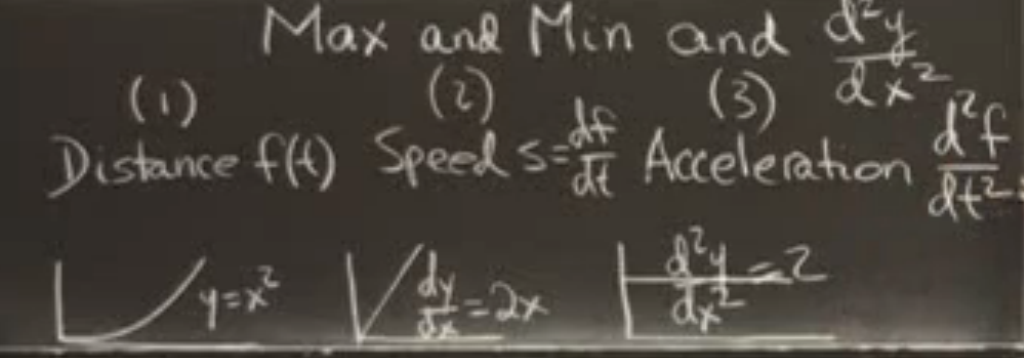 Max and Min and d²y/dx²
(1) (2) (3)
Distance f(t) Speed s=df/dt Acceleration d²f/dt²
y=x² dy/dx=2x d²y/dx²=2